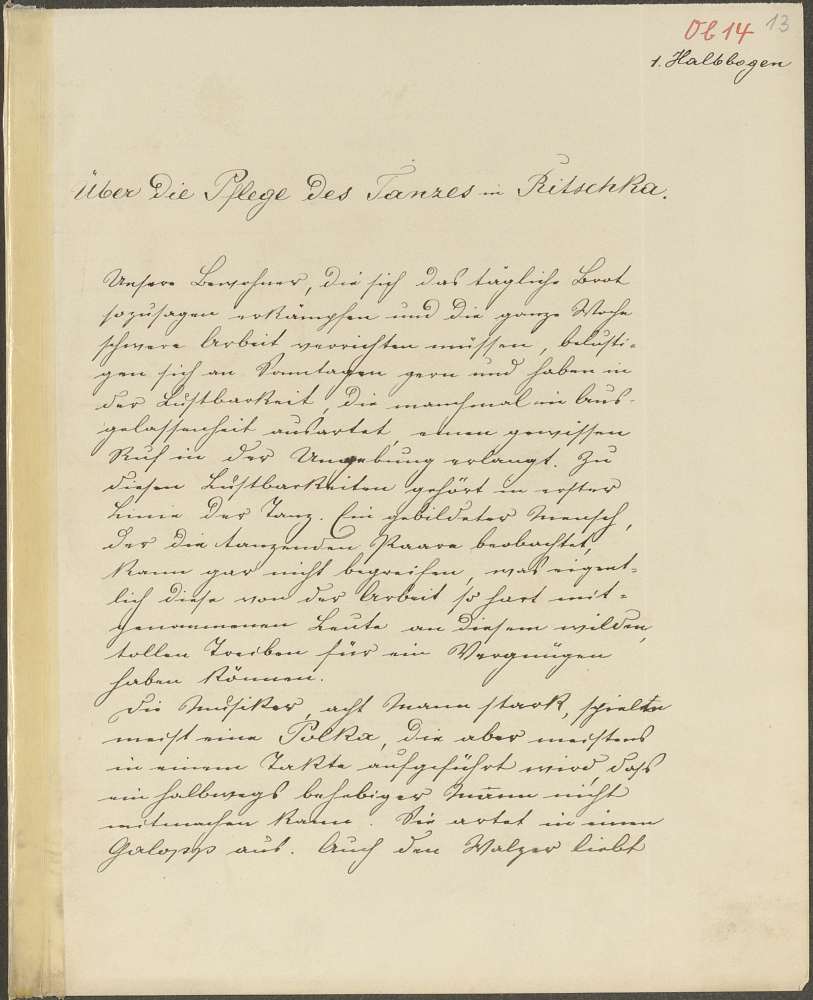 Ob 14 13
1. Halbbogen
Über die Pflege des Tanzes in Ritschka.
Unsere Bewohner, die sich das tägliche Brot
sozusagen erkämpfen und die ganze Woche
schwere Arbeit verrichten müssen, belusti-
gen sich an Sonntagen gern und haben in
der Lustbarkeit, die manchmal in Aus-
gelassenheit ausartet, einen gewissen
Ruf in der Umgebung erlangt. Zu
diesen Lustbarkeiten gehört in erster
Linie der Tanz. Ein gebildeter Mensch,
der die tanzenden Paare beobachtet,
kann gar nicht begreifen, was eigent-
lich diese von der Arbeit so hart mit-
genommenen Leute an diesem wilden,
tollen Treiben für ein Vergnügen
haben können.
Die Musiker, acht Mann stark, spielten
meist eine Polka, die aber meistens
in einem Takte aufgeführt wird, dass
ein halbwegs behebiger Mann nicht
mitmachen kann. Sie artet in einen
Galopp aus. Auch den Walzer liebt